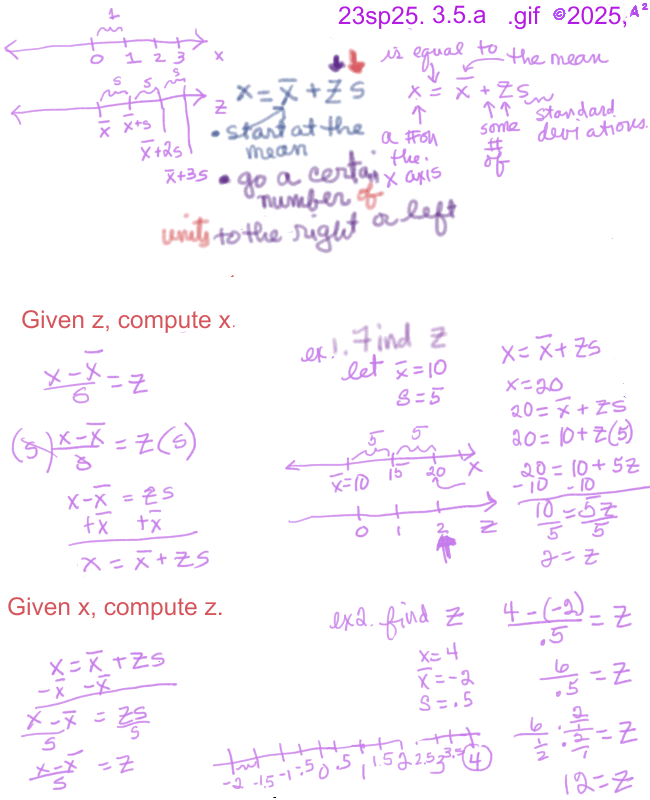 23sp25. 3.5.a .gif ©2025, A²
1
0 1 2 3 x
s s s
z
x̄ x̄+s
x̄+2s
x̄+3s
x = x̄ + z s
• start at the
mean
• go a certain
number of
units to the right or left
is equal to the mean
x = x̄ + z s
a # on
the
x axis
some
#
of
standard
deviations.
Given z, compute x.
x - x̄ / s = z
(s) x - x̄ / s = z(s)
x - x̄ = zs
+x̄ +x̄
x = x̄ + zs
ex. 1. Find z
let x̄ = 10
s = 5
5 5
x̄=10 15 20 x
0 1 2 z
x = x̄ + zs
x = 20
20 = x̄ + zs
20 = 10 + z(5)
20 = 10 + 5z
-10 -10
10 / 5 = 5z / 5
2 = z
Given x, compute z.
x = x̄ + zs
-x̄ -x̄
x - x̄ / s = zs / s
x - x̄ / s = z
ex2. find z
x = 4
x̄ = -2
s = .5
-2 -1.5 -1 -.5 0 .5 1 1.5 2 2.5 3 3.5 4
4 - (-2) / .5 = z
6 / .5 = z
6 / 1/2 · 2/1 / 2/1 = z
12 = z